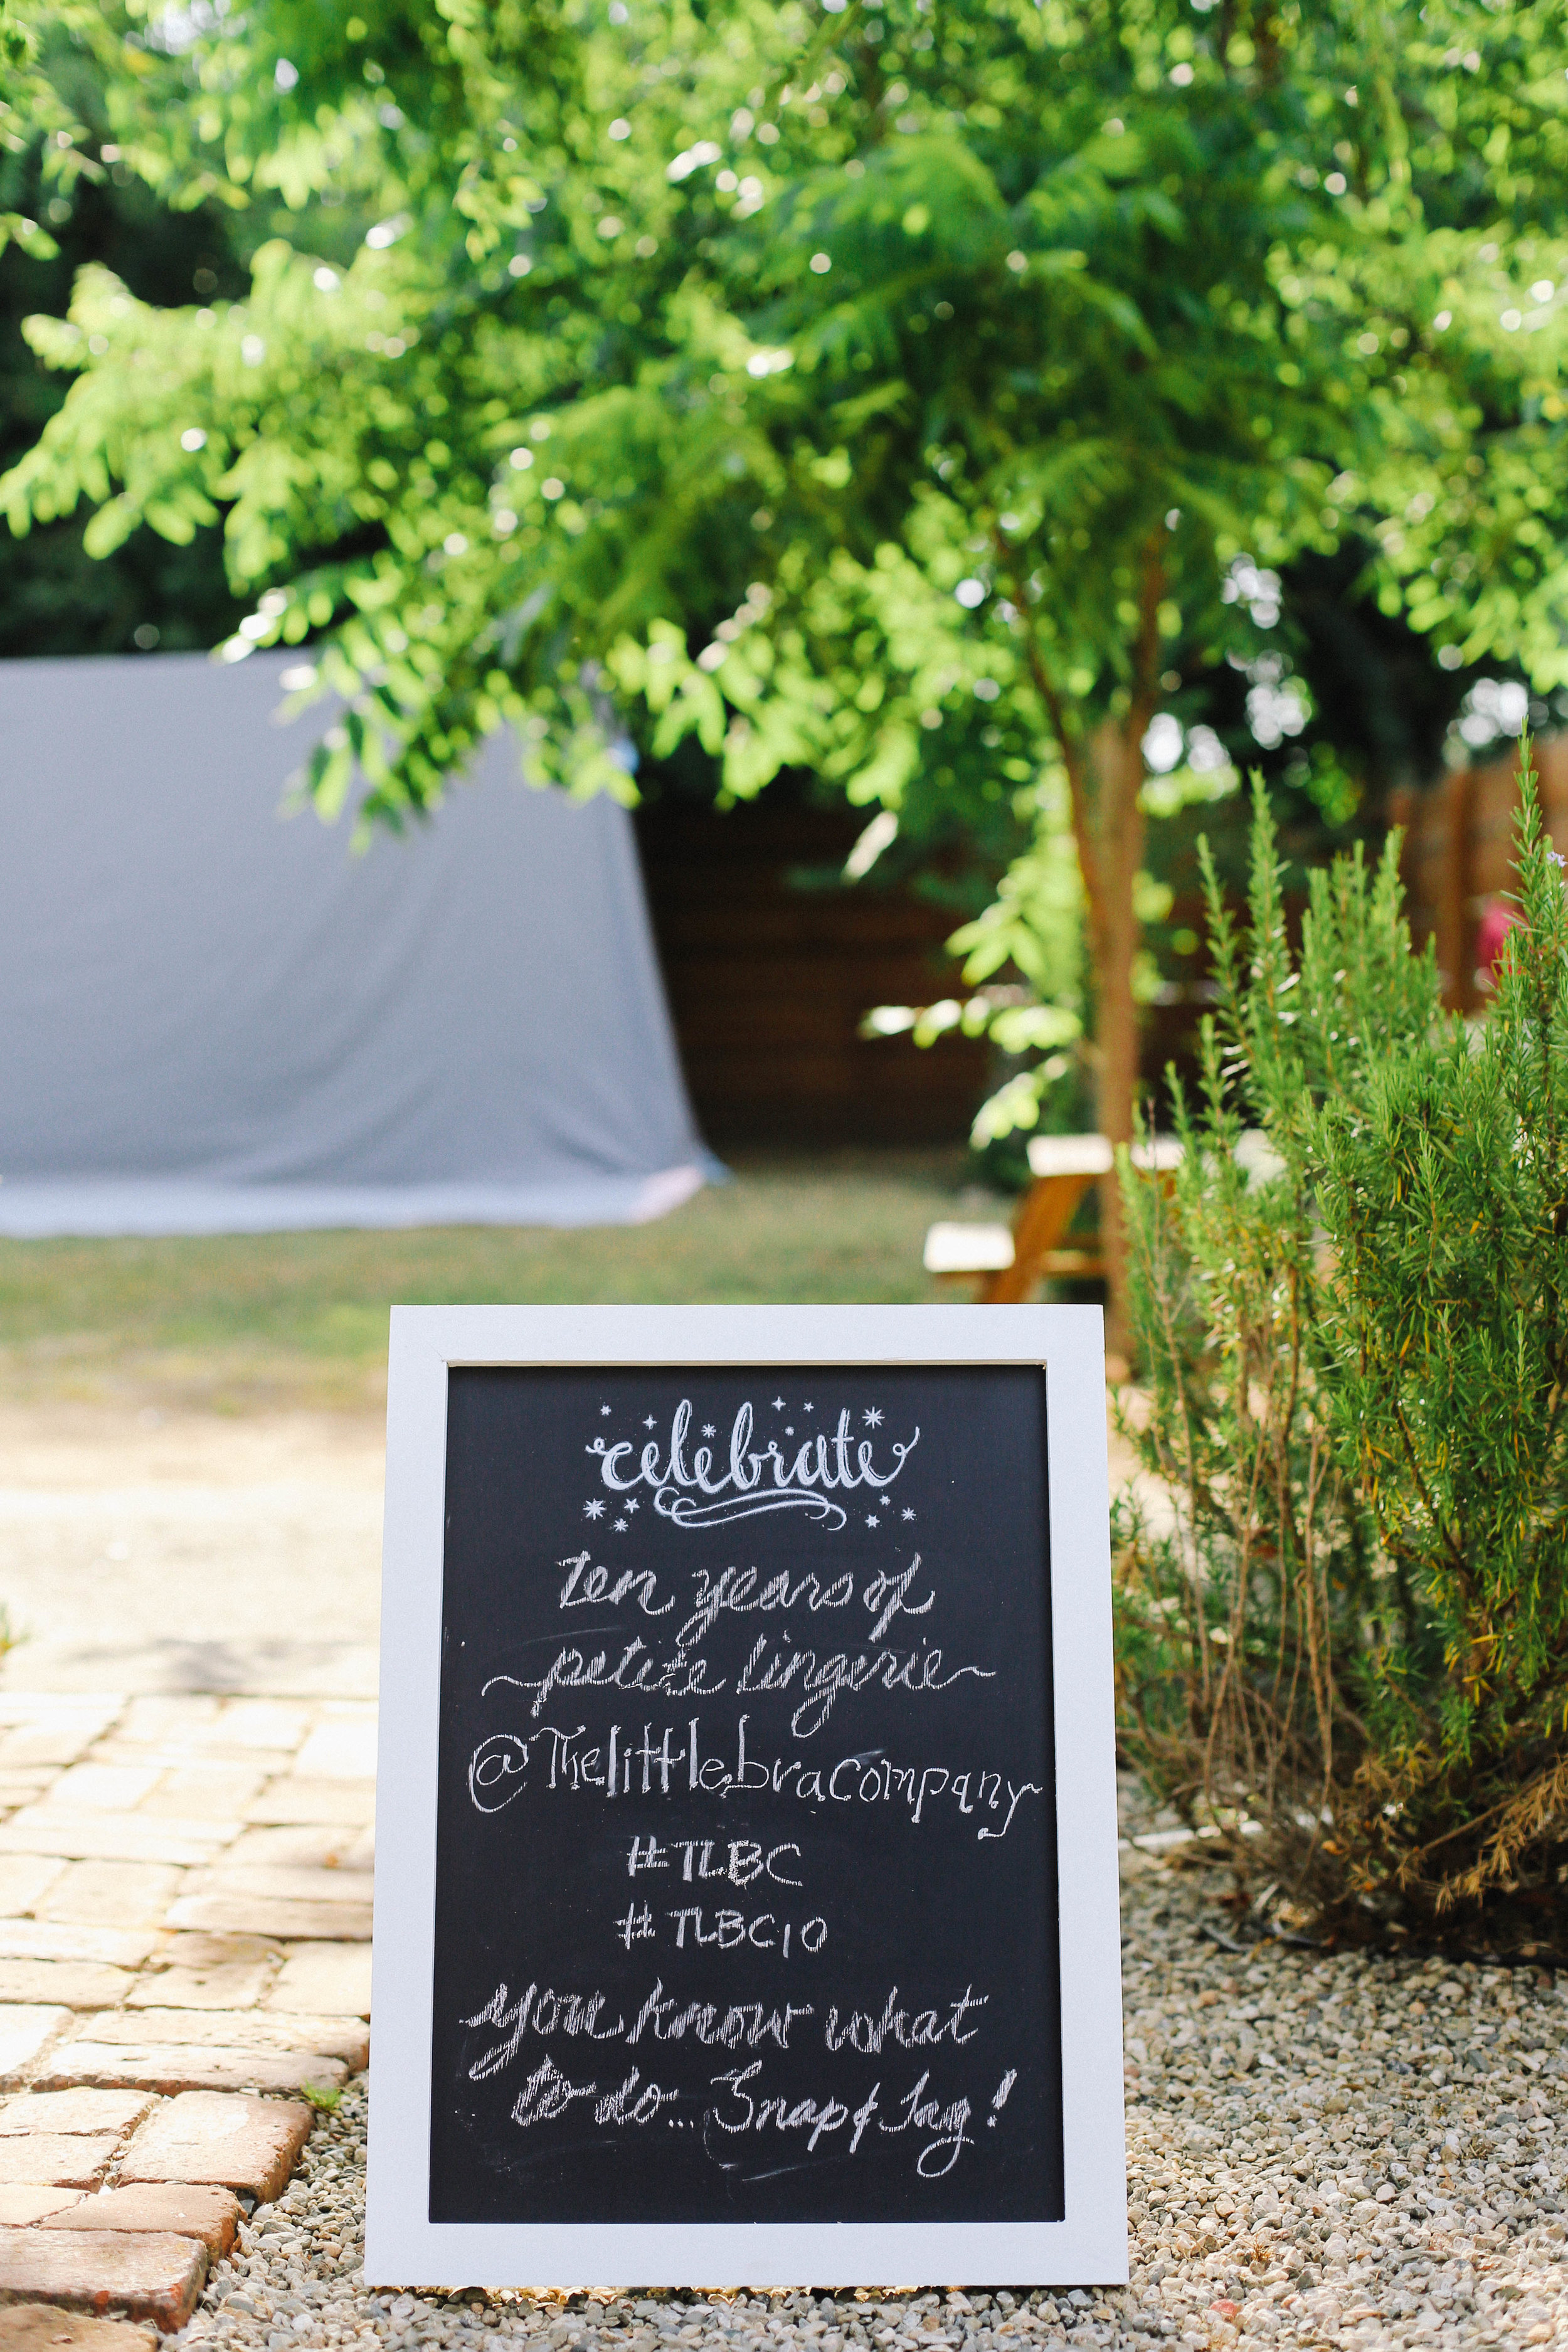 celebrate
ten years of
~petite lingerie~
@Thelittlebracompany
#TLBC
#TLBC10
you know what
to do... Snap & Tag!